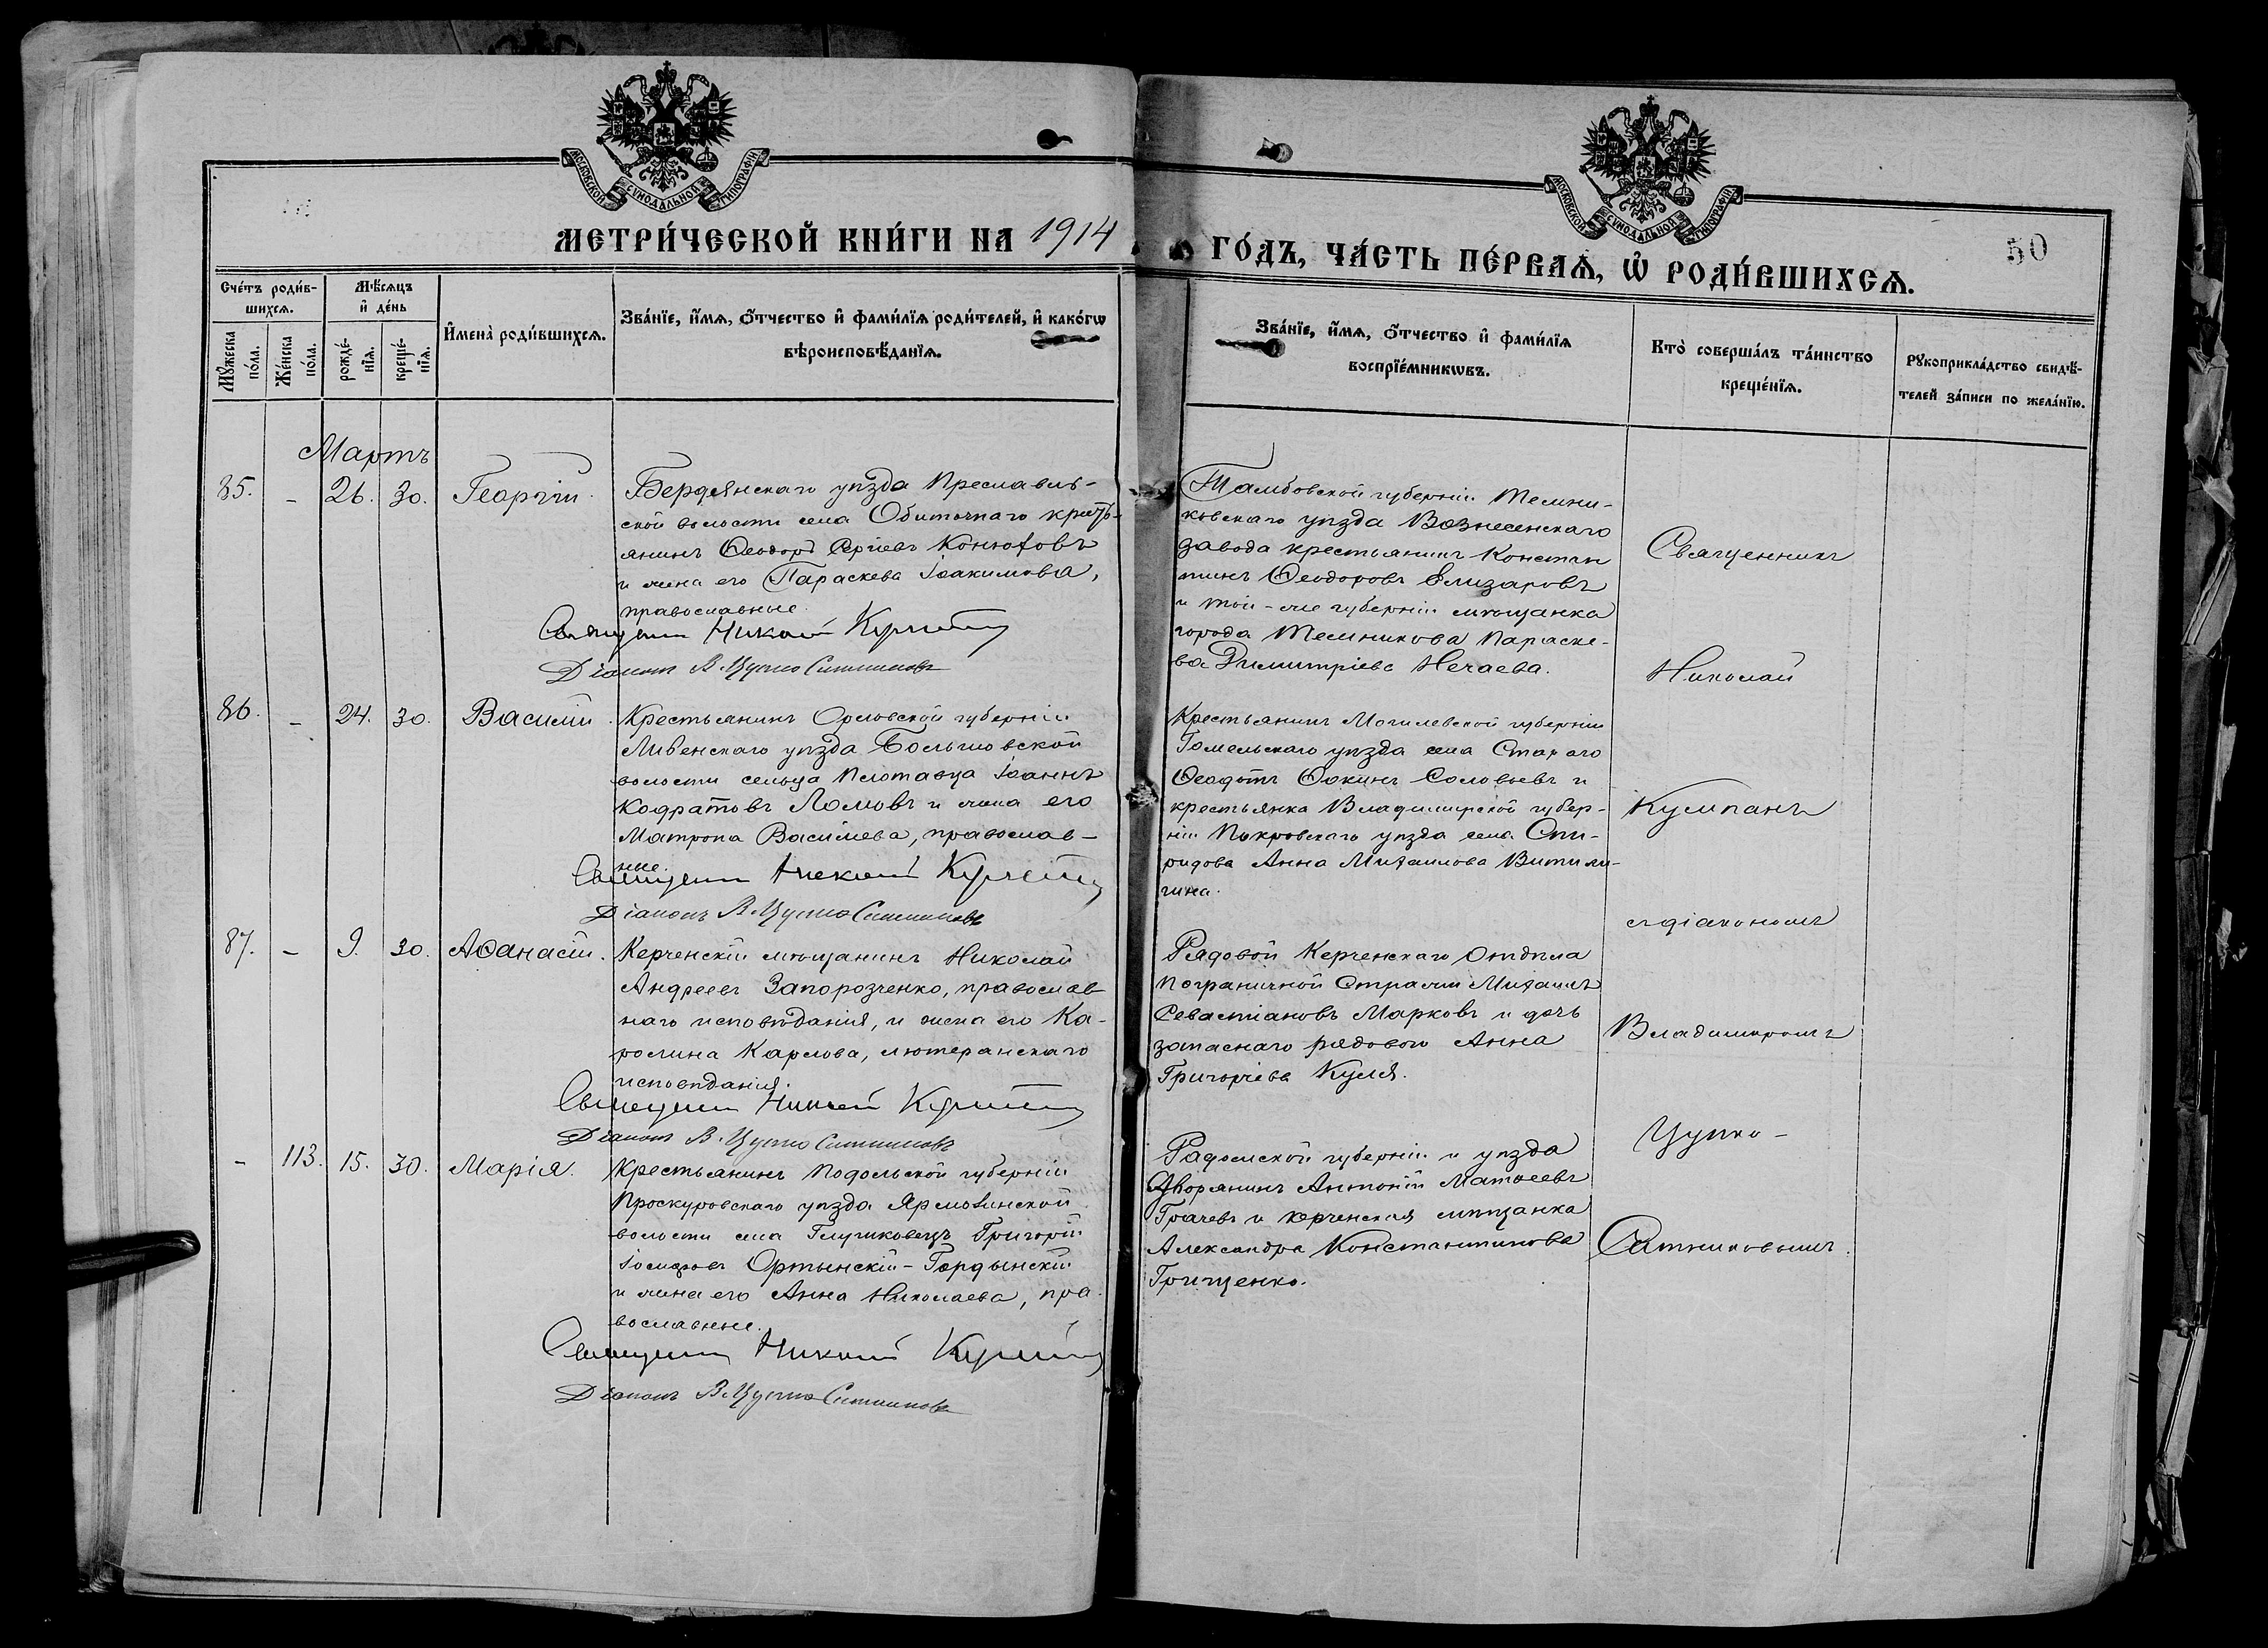 МОСКОВСКОЙ СѴНОДАЛЬНОЙ ТИПОГРАФІИ
МОСКОВСКОЙ СѴНОДАЛЬНОЙ ТИПОГРАФІИ
МЕТРИ́ЧЕСКОЙ КНИ́ГИ НА 1914
ГО́ДЪ, ЧА́СТЬ ПЕ́РВАѦ, Ѡ҆ РОДИ́ВШИХСѦ.
50
Сче́тъ роди́в-
шихсѧ.
Мꙋ́жеска
по́ла.
Же́нска
по́ла.
Мѣ́сѧцъ
и҆ де́нь
рожде́-
нїѧ.
креще́-
нїѧ.
И҆мена̀ роди́вшихсѧ.
Зва́нїе, и҆́мѧ, ѻ҆́тчество и҆ фами́лїѧ роди́телей, и҆ како́гѡ
вѣроисповѣ́данїѧ.
Зва́нїе, и҆́мѧ, ѻ҆́тчество и҆ фами́лїѧ
воспрїе́мникѡвъ.
Кто̀ соверша́лъ та́инство
креще́нїѧ.
Рꙋкоприкла́дство свидѣ́-
телей за́писи по жела́нїю.
Мартъ
85. - 26. 30. Георгій.
Бердянскаго уѣзда Преславль-
ской волости села Обиточнаго кресть-
янинъ Ѳеодоръ Сергіевъ Конюховъ
и жена его Параскева Іоакимова,
православные.
Священникъ Николай Кумпанъ
Діаконъ В. Цупко Ситниковъ
Тамбовской губерніи Темни-
ковскаго уѣзда Вознесенскаго
завода крестьянинъ Констан
тинъ Ѳеодоровъ Елизаровъ
и той-же губерніи мѣщанка
города Темникова Параске-
ва Димитріева Нечаева.
86. - 24. 30. Василій.
Крестьянинъ Орловской губерніи
Ливенскаго уѣзда
волости сельца Плотавца Іоаннъ
Кодратовъ Ломовъ и жена его
Матрона Васильева, православ-
ные.
Священникъ Николай Кумпанъ
Діаконъ В. Цупко Ситниковъ
Крестьянинъ Могилевской губерніи
Гомельскаго уѣзда села Стараго
Ѳеодотъ Ѳокинъ Соловьевъ и
крестьянка Владимирской губер-
ніи Покровскаго уѣзда села Спи-
ридова Анна Михаилова
87. - 9. 30. Аѳанасій.
Керченскій мѣщанинъ Николай
Андреевъ Запорозченко, православ
наго исповѣданія, и жена его Ка-
ролина Карлова, лютеранскаго
исповѣданія.
Священникъ Николай Кумпанъ
Діаконъ В. Цупко Ситниковъ
Рядовой Керченскаго Отдѣла
Пограничной Стражи Михаилъ
Севастіановъ Марковъ и дочь
запаснаго рядового Анна
Григоріева Куля.
- 113. 15. 30. Марія.
Крестьянинъ Подольской губерніи
Проскуровскаго уѣзда Ярмолинской
волости села Глушковецъ Григорій
Іосифовъ Ортынскій-Гордынскій
и жена его Анна Николаева, пра
вославные.
Священникъ Николай Кумпанъ
Діаконъ В. Цупко Ситниковъ
Радомской губерніи и уѣзда
Дворянинъ Антоній Матѳеевъ
Грачевъ и керченская мѣщанка
Александра Константинова
Грищенко.
Священникъ
Николай
Кумпанъ
съ діакономъ
Владимиромъ
Цупко-
Ситниковымъ.